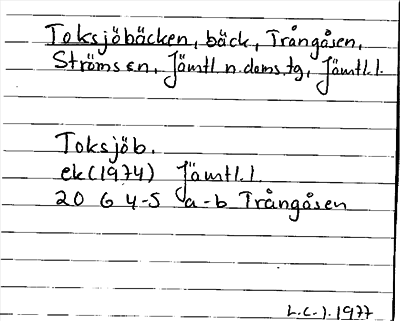 Toksjöbäcken, bäck, Trångåsen,
Ströms sn, Jämtl. n. doms. tg, Jämtl. l.
Toksjöb.
ek (1974) Jämtl. l.
20 G 4-5 a-b Trångåsen
L.C.J. 1977